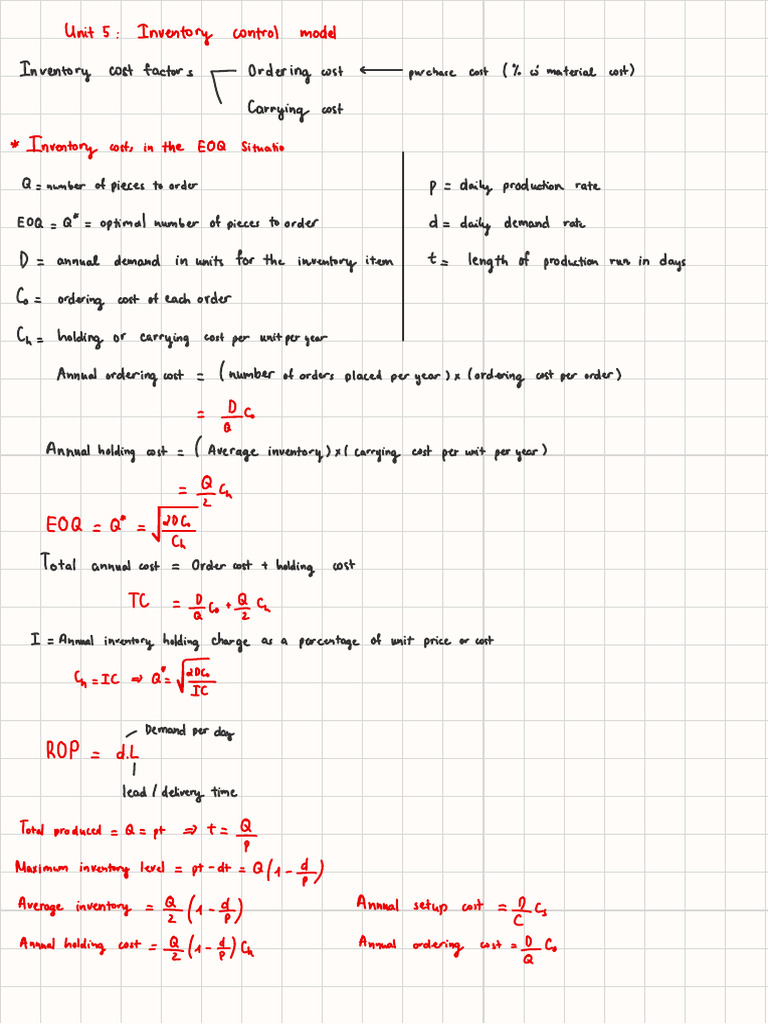 Unit 5: Inventory control model
Inventory cost factors
Ordering cost ← purchase cost (% of material cost)
Carrying cost
* Inventory costs in the EOQ Situatio
Q = number of pieces to order
EOQ = Q* = optimal number of pieces to order
D = annual demand in units for the inventory item
C₀ = ordering cost of each order
Cₕ = holding or carrying cost per unit per year
p = daily production rate
d = daily demand rate
t = length of production run in days
Annual ordering cost = (number of orders placed per year) × (ordering cost per order)
= D/Q C₀
Annual holding cost = (Average inventory) × (carrying cost per unit per year)
= Q/2 Cₕ
EOQ = Q* = √(2DC₀/Cₕ)
Total annual cost = Order cost + holding cost
TC = D/Q C₀ + Q/2 Cₕ
I = Annual inventory holding charge as a percentage of unit price or cost
Cₕ = IC ⇒ Q* = √(2DC₀/IC)
Demand per day
ROP = d.L
lead / delivery time
Total produced = Q = pt ⇒ t = Q/p
Maximum inventory level = pt - dt = Q(1 - d/p)
Average inventory = Q/2 (1 - d/p)
Annual holding cost = Q/2 (1 - d/p) Cₕ
Annual setup cost = D/C Cₛ
Annual ordering cost = D/Q C₀